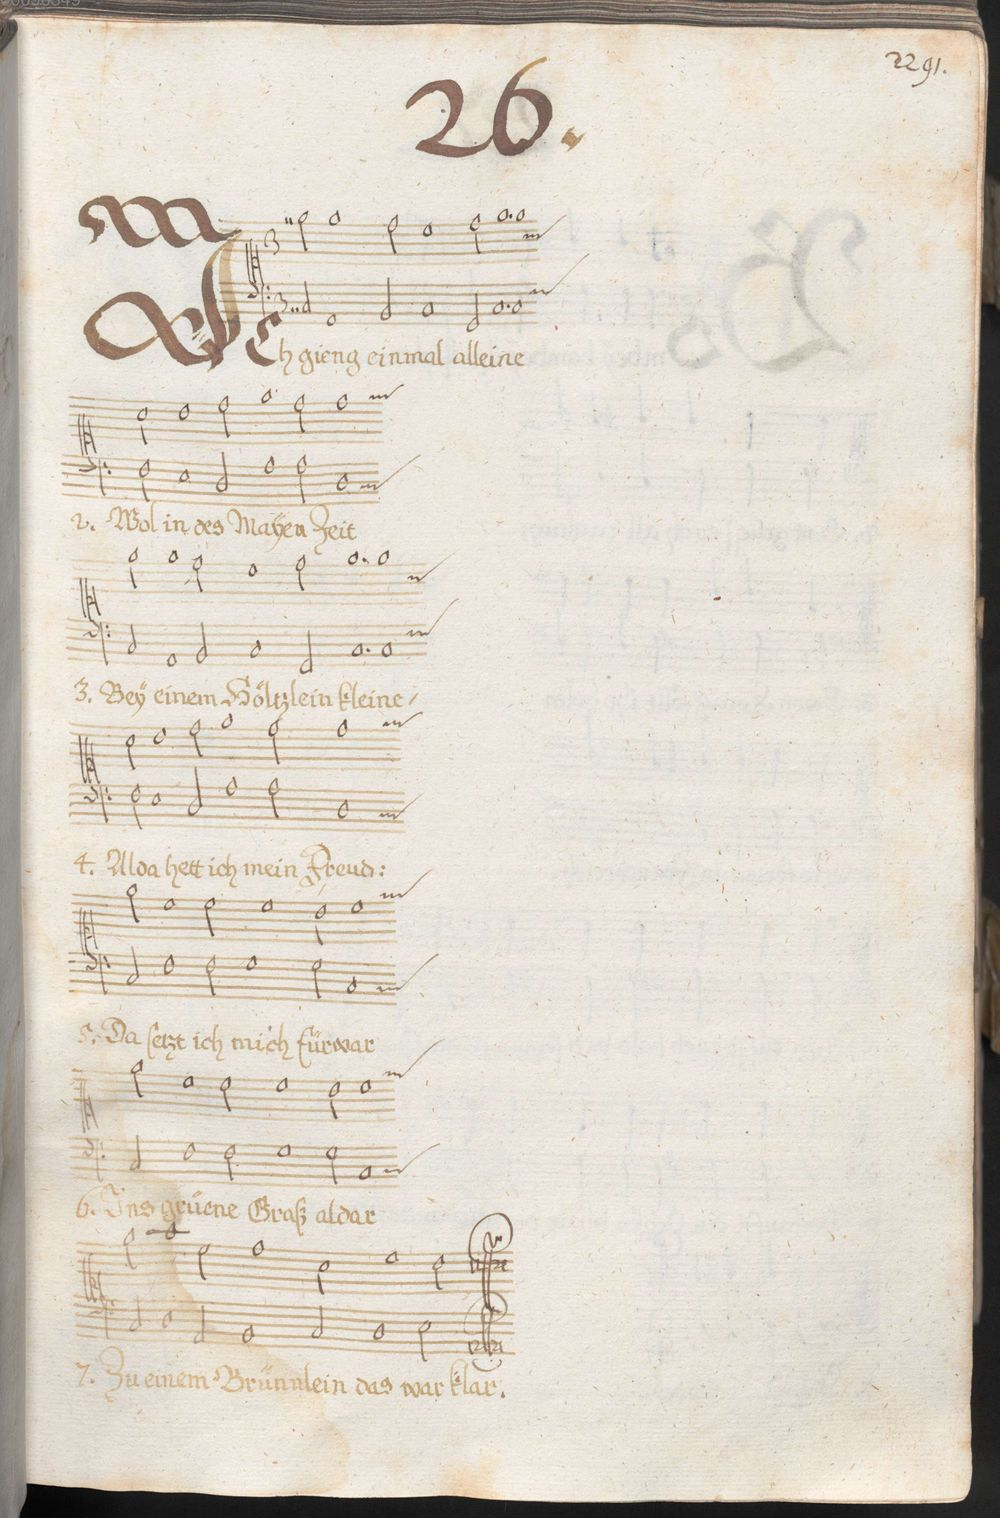 2291.
26.
Ich gieng einmal alleine
2. Wol in des Mayen Zeit
3. Beÿ einem Höltzlein kleine/
4. Alda hett ich mein Freud:
5. Da setzt ich mich fürwar
6. Ins grüene Graß aldar
7. Zu einem Brünnlein das war klar.